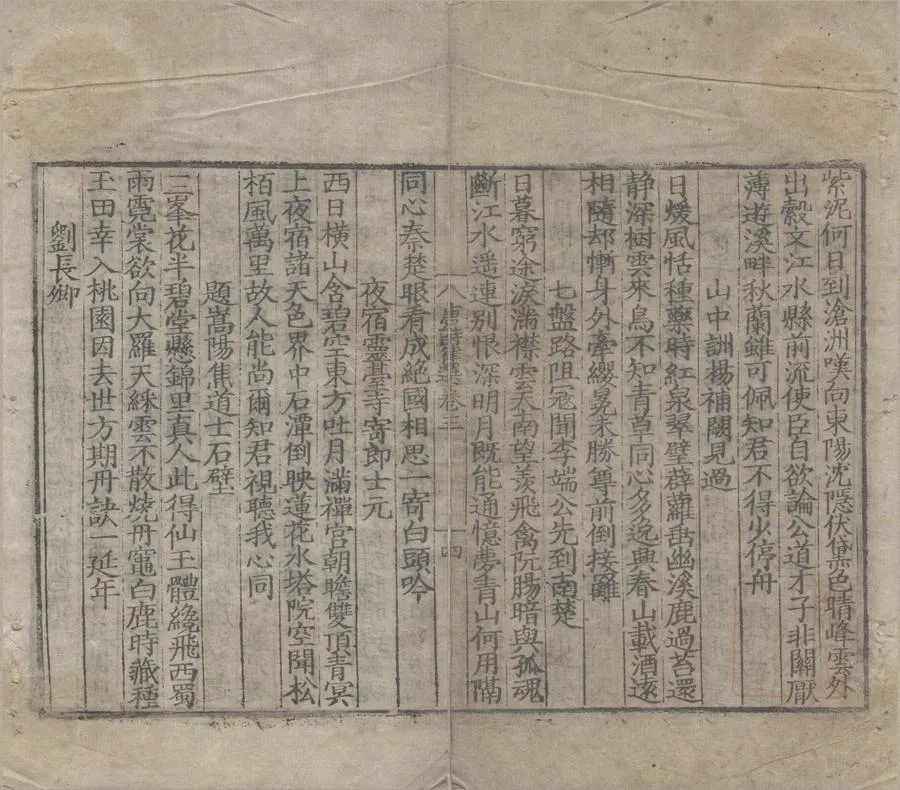 紫泥何日到滄洲嘆向東陽沈隱伏黛色晴峰雲外
出縠文江水縣前流使臣自欲論公道才子非關厭
薄遊溪畔秋蘭雖可佩知君不得少停舟
山中訓楊補闕見過
日煖風恬種藥時紅泉翠壁薜蘿垂幽溪鹿過苔還
静深樹雲來鳥不知青草同心多逸興春山載酒遠
相隨却慚身外牽纓冕未勝尊前倒接䍦
七盤路阻寇聞李端公先到南楚
日暮窮途淚滿襟雲天南望羨飛禽阮腸暗與孤魂
斷江水遥連別恨深明月既能通憶夢青山何用隔
卷三 十四
同心秦楚眼看成絶國相思一寄白頭吟
夜宿靈臺寺寄郎士元
西日横山含碧空東方吐月滿禪宫朝瞻雙頂青冥
上夜宿諸天色界中石潭倒映蓮花水塔院空聞松
栢風萬里故人能尚爾知君視聽我心同
題嵩陽焦道士石壁
三峯花半碧堂懸錦里真人此得仙玉體纔飛西蜀
雨霓裳欲向大羅天綵雲不散燒丹竈白鹿時藏種
玉田幸入桃園因去世方期丹訣一延年
劉長卿